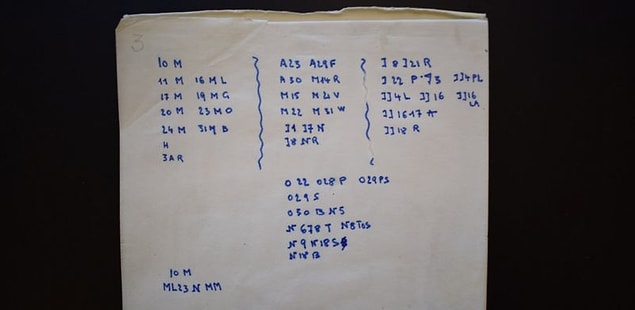 3
10 M
11 M 16 M L
17 M 19 M G
20 M 23 M O
24 M 31 M B
H
3 A R
A23 A29F
A30 M14R
M15 M21V
M22 M31W
J1 J7N
J8NR
J8 J21R
J22 P
JJ4PL
JJ4L JJ16 JJ16
JJ16-17 A
JJ18 R
O22 O28P O29PS
O29S
O30B N5
N678T N8TOS
N9N18S
N18B
10 M
ML23 N MM